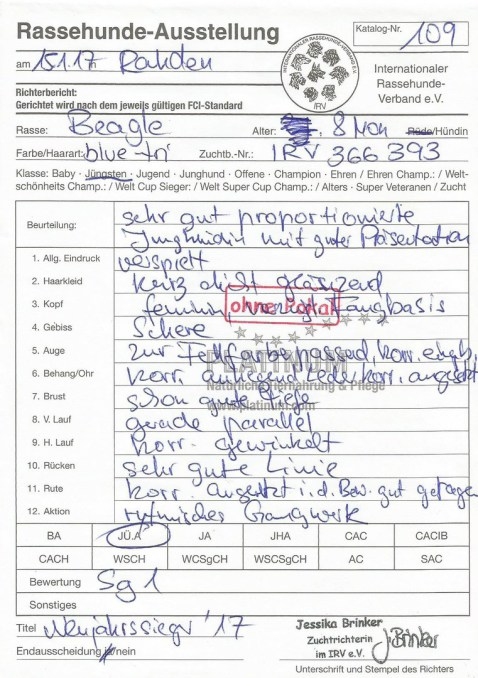 Rassehunde-Ausstellung
Katalog-Nr. 109
am 15.1.17 in Rahden
INTERNATIONALER RASSEHUNDE-VERBAND e.V.
IRV
Internationaler
Rassehunde-
Verband e.V.
Richterbericht:
Gerichtet wird nach dem jeweils gültigen FCI-Standard
Rasse: Beagle Alter: 8 Mon Rüde/Hündin
Farbe/Haarart: blue-tri Zuchtb.-Nr.: IRV 366 393
Klasse: Baby · Jüngsten · Jugend · Junghund · Offene · Champion · Ehren / Ehren Champ.: / Welt-
schönheits Champ.: / Welt Cup Sieger: / Welt Super Cup Champ.: / Alters · Super Veteranen / Zucht
Beurteilung: sehr gut proportionierte
Junghündin mit guter Präsentation
1. Allg. Eindruck verspielt
2. Haarkleid kurz dicht glänzend
3. Kopf feminin Fangbasis
ohne Pokal
4. Gebiss Schere
5. Auge zur Fellfarbe passend, korr. eingeb.
PLATINUM
6. Behang/Ohr korr. anliegend Leder korr. angesetzt
Natürliche Tiernahrung & Pflege
7. Brust schon gute Tiefe
www.platinum.com
8. V. Lauf gerade parallel
9. H. Lauf korr. gewinkelt
10. Rücken sehr gute Linie
11. Rute korr. angesetzt i.d. Bew. gut getragen
12. Aktion rytmisches Gangwerk
BA JÜ.A JA JHA CAC CACIB
CACH WSCH WCSgCH WSCSgCH AC SAC
Bewertung Sg 1
Sonstiges
Titel Neujahrssieger '17
Endausscheidung ja/nein
Jessika Brinker
Zuchtrichterin
im IRV e.V.
J. Brinker
Unterschrift und Stempel des Richters